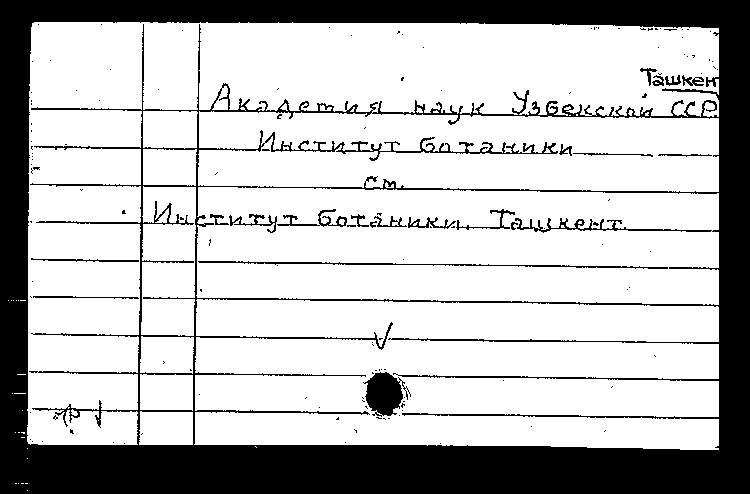 Ташкен
Академия наук Узбекской ССР
Институт ботаники
см.
Институт ботаники. Ташкент.